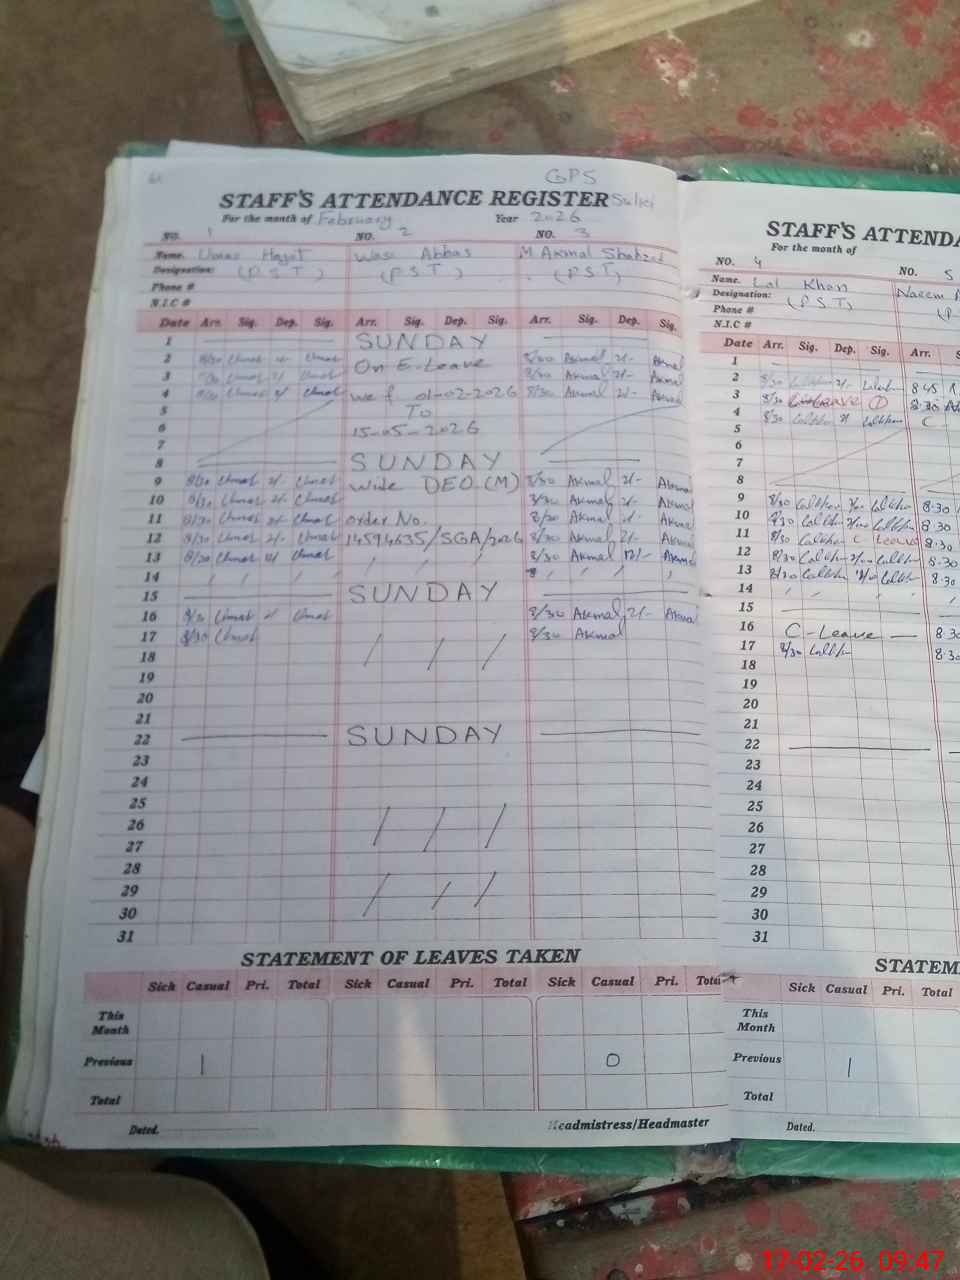 GPS
STAFF'S ATTENDANCE REGISTER
For the month of February Year 2026
NO. 1 NO. 2 NO. 3
Name. Hayat Abbas M Akmal Shahzad
Designation: (P S T) (P S T) (P S T)
Phone #
N.I.C #
Date Arr. Sig. Dep. Sig. Arr. Sig. Dep. Sig. Arr. Sig. Dep. Sig.
1 SUNDAY
2 8/30 2/- On E-Leave 8/30 Akmal 2/- Akmal
3 8/30 2/- 8/30 Akmal 2/- Akmal
4 8/30 2/- we f 01-02-2026 8/30 Akmal 2/- Akmal
5 TO
6 15-05-2026
7
8 SUNDAY
9 8/30 2/- wide DEO (M) 8/30 Akmal 2/- Akmal
10 8/30 2/- 8/30 Akmal 2/- Akmal
11 8/30 2/- order No. 8/30 Akmal 2/- Akmal
12 8/30 2/- 14594635/SGA/2026 8/30 Akmal 2/- Akmal
13 8/30 12/- 8/30 Akmal 12/- Akmal
14
15 SUNDAY
16 8/30 2/- 8/30 Akmal 2/- Akmal
17 8/30 8/30 Akmal
18
19
20
21
22 SUNDAY
23
24
25
26
27
28
29
30
31
STATEMENT OF LEAVES TAKEN
Sick Casual Pri. Total Sick Casual Pri. Total Sick Casual Pri. Total
This Month
Previous 1 0
Total
Dated. Headmistress/Headmaster
STAFF'S ATTENDA
For the month of
NO. 4 NO. 5
Name. Lal Khan Naeem
Designation: (P S T)
Phone #
N.I.C #
Date Arr. Sig. Dep. Sig. Arr. S
1
2 8/30 2/- 8:45
3 8/30 Leave 1 8:30
4 8/30 C
5
6
7
8
9 8/30 8:30
10 8/30 8:30
11 8/30 C Leave 8:30
12 8/30 8:30
13 8/30 8:30
14
15
16 C-Leave 8:30
17 8/30 8:30
18
19
20
21
22
23
24
25
26
27
28
29
30
31
STATEM
Sick Casual Pri. Total
This Month
Previous 1
Total
Dated.
17-02-26 09:47